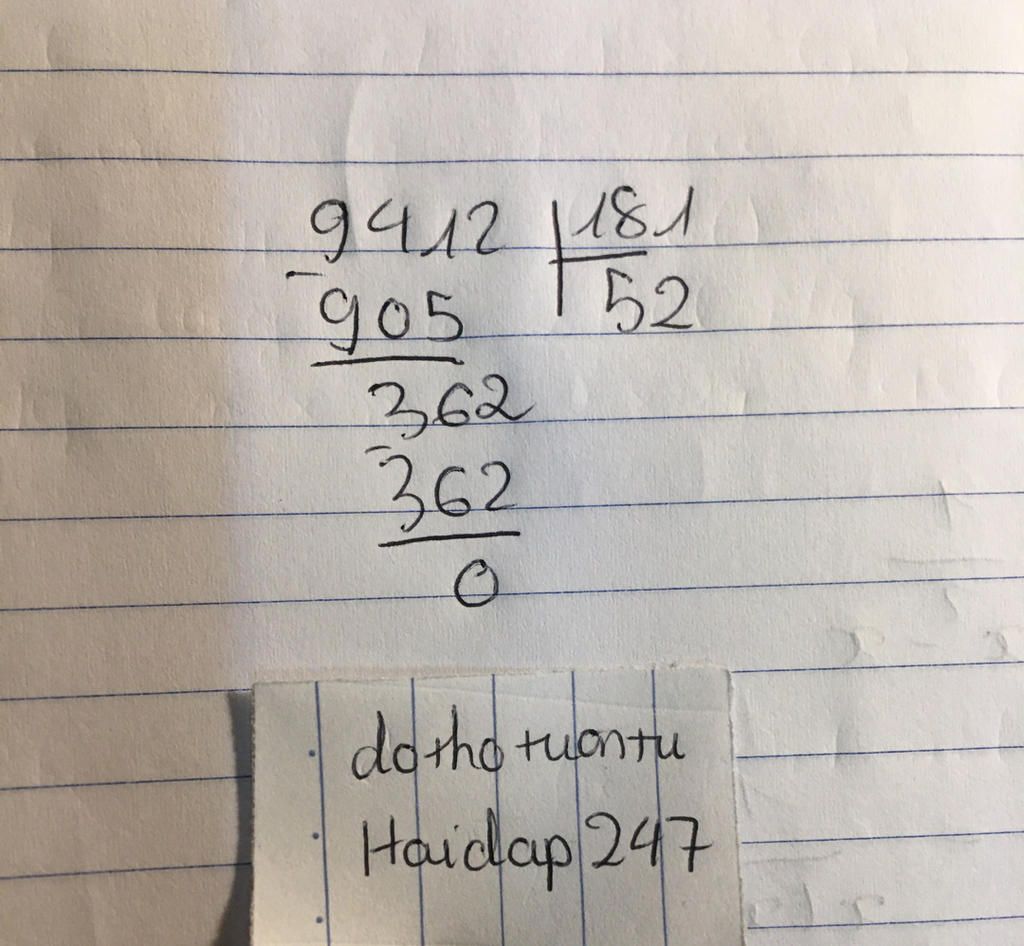 9412 181
- 905 52
362
- 362
0
dothotuontu
Haidap247